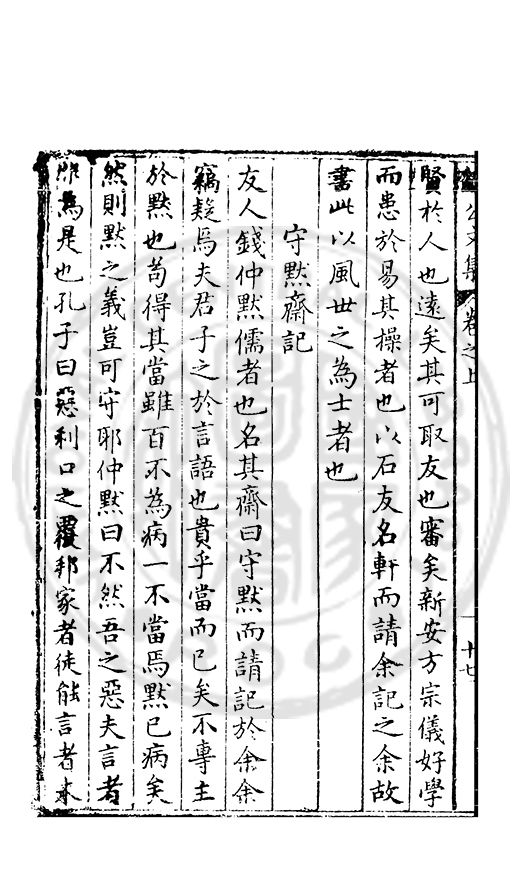 公文集 卷之上 十七
賢於人也遠矣其可取友也審矣新安方宗儀好學
而患於易其操者也以石友名軒而請余記之余故
書此以風世之為士者也
守默齋記
友人錢仲默儒者也名其齋曰守默而請記於余余
竊疑焉夫君子之於言語也貴乎當而已矣不專主
於默也苟得其當雖百不為病一不當焉默已病矣
然則默之義豈可守耶仲默曰不然吾之惡夫言者
為是也孔子曰惡利口之覆邦家者徒能言者未